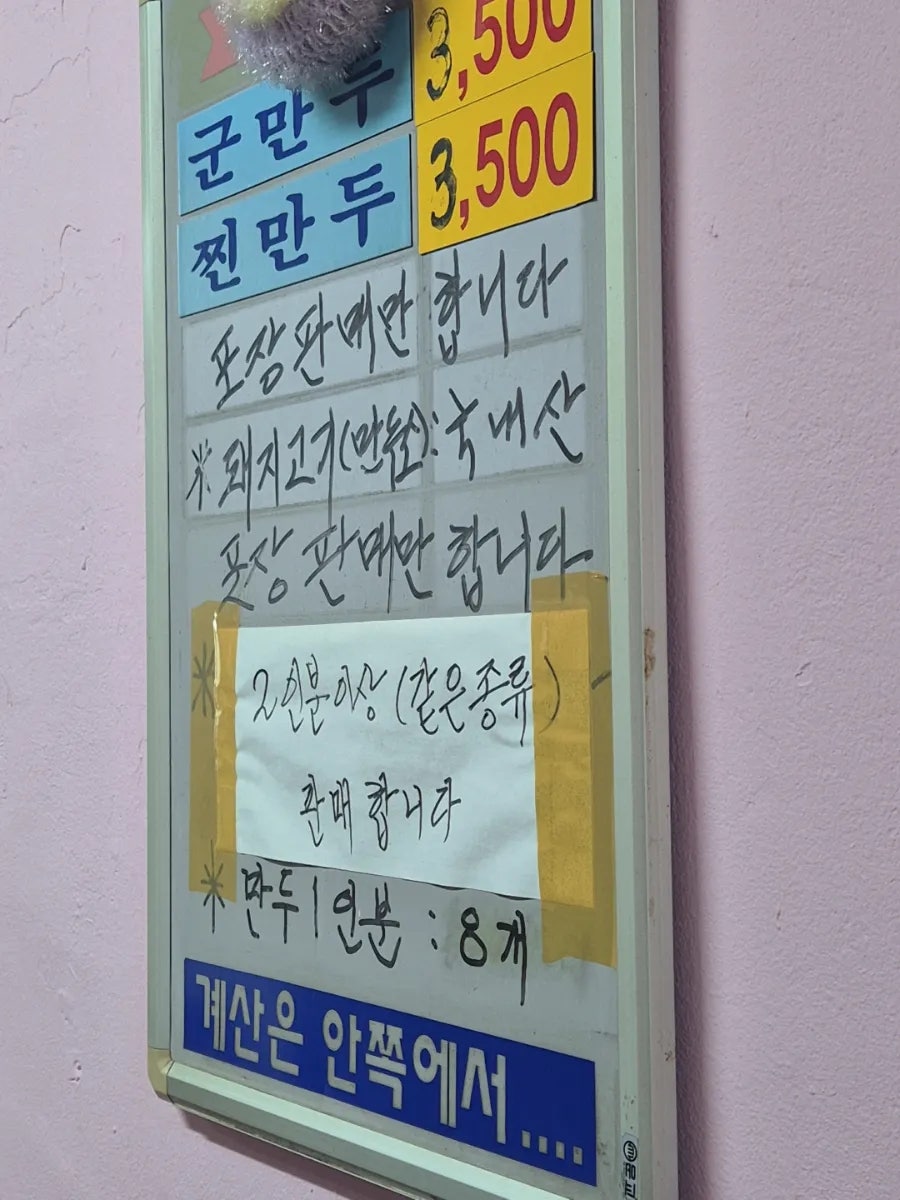 군만두 3,500
찐만두 3,500
포장판매만 합니다
※돼지고기(만두소):국내산
포장 판매만 합니다.
* 2인분이상 (같은종류)
판매합니다
* 만두 1인분 : 8개
계산은 안쪽에서....